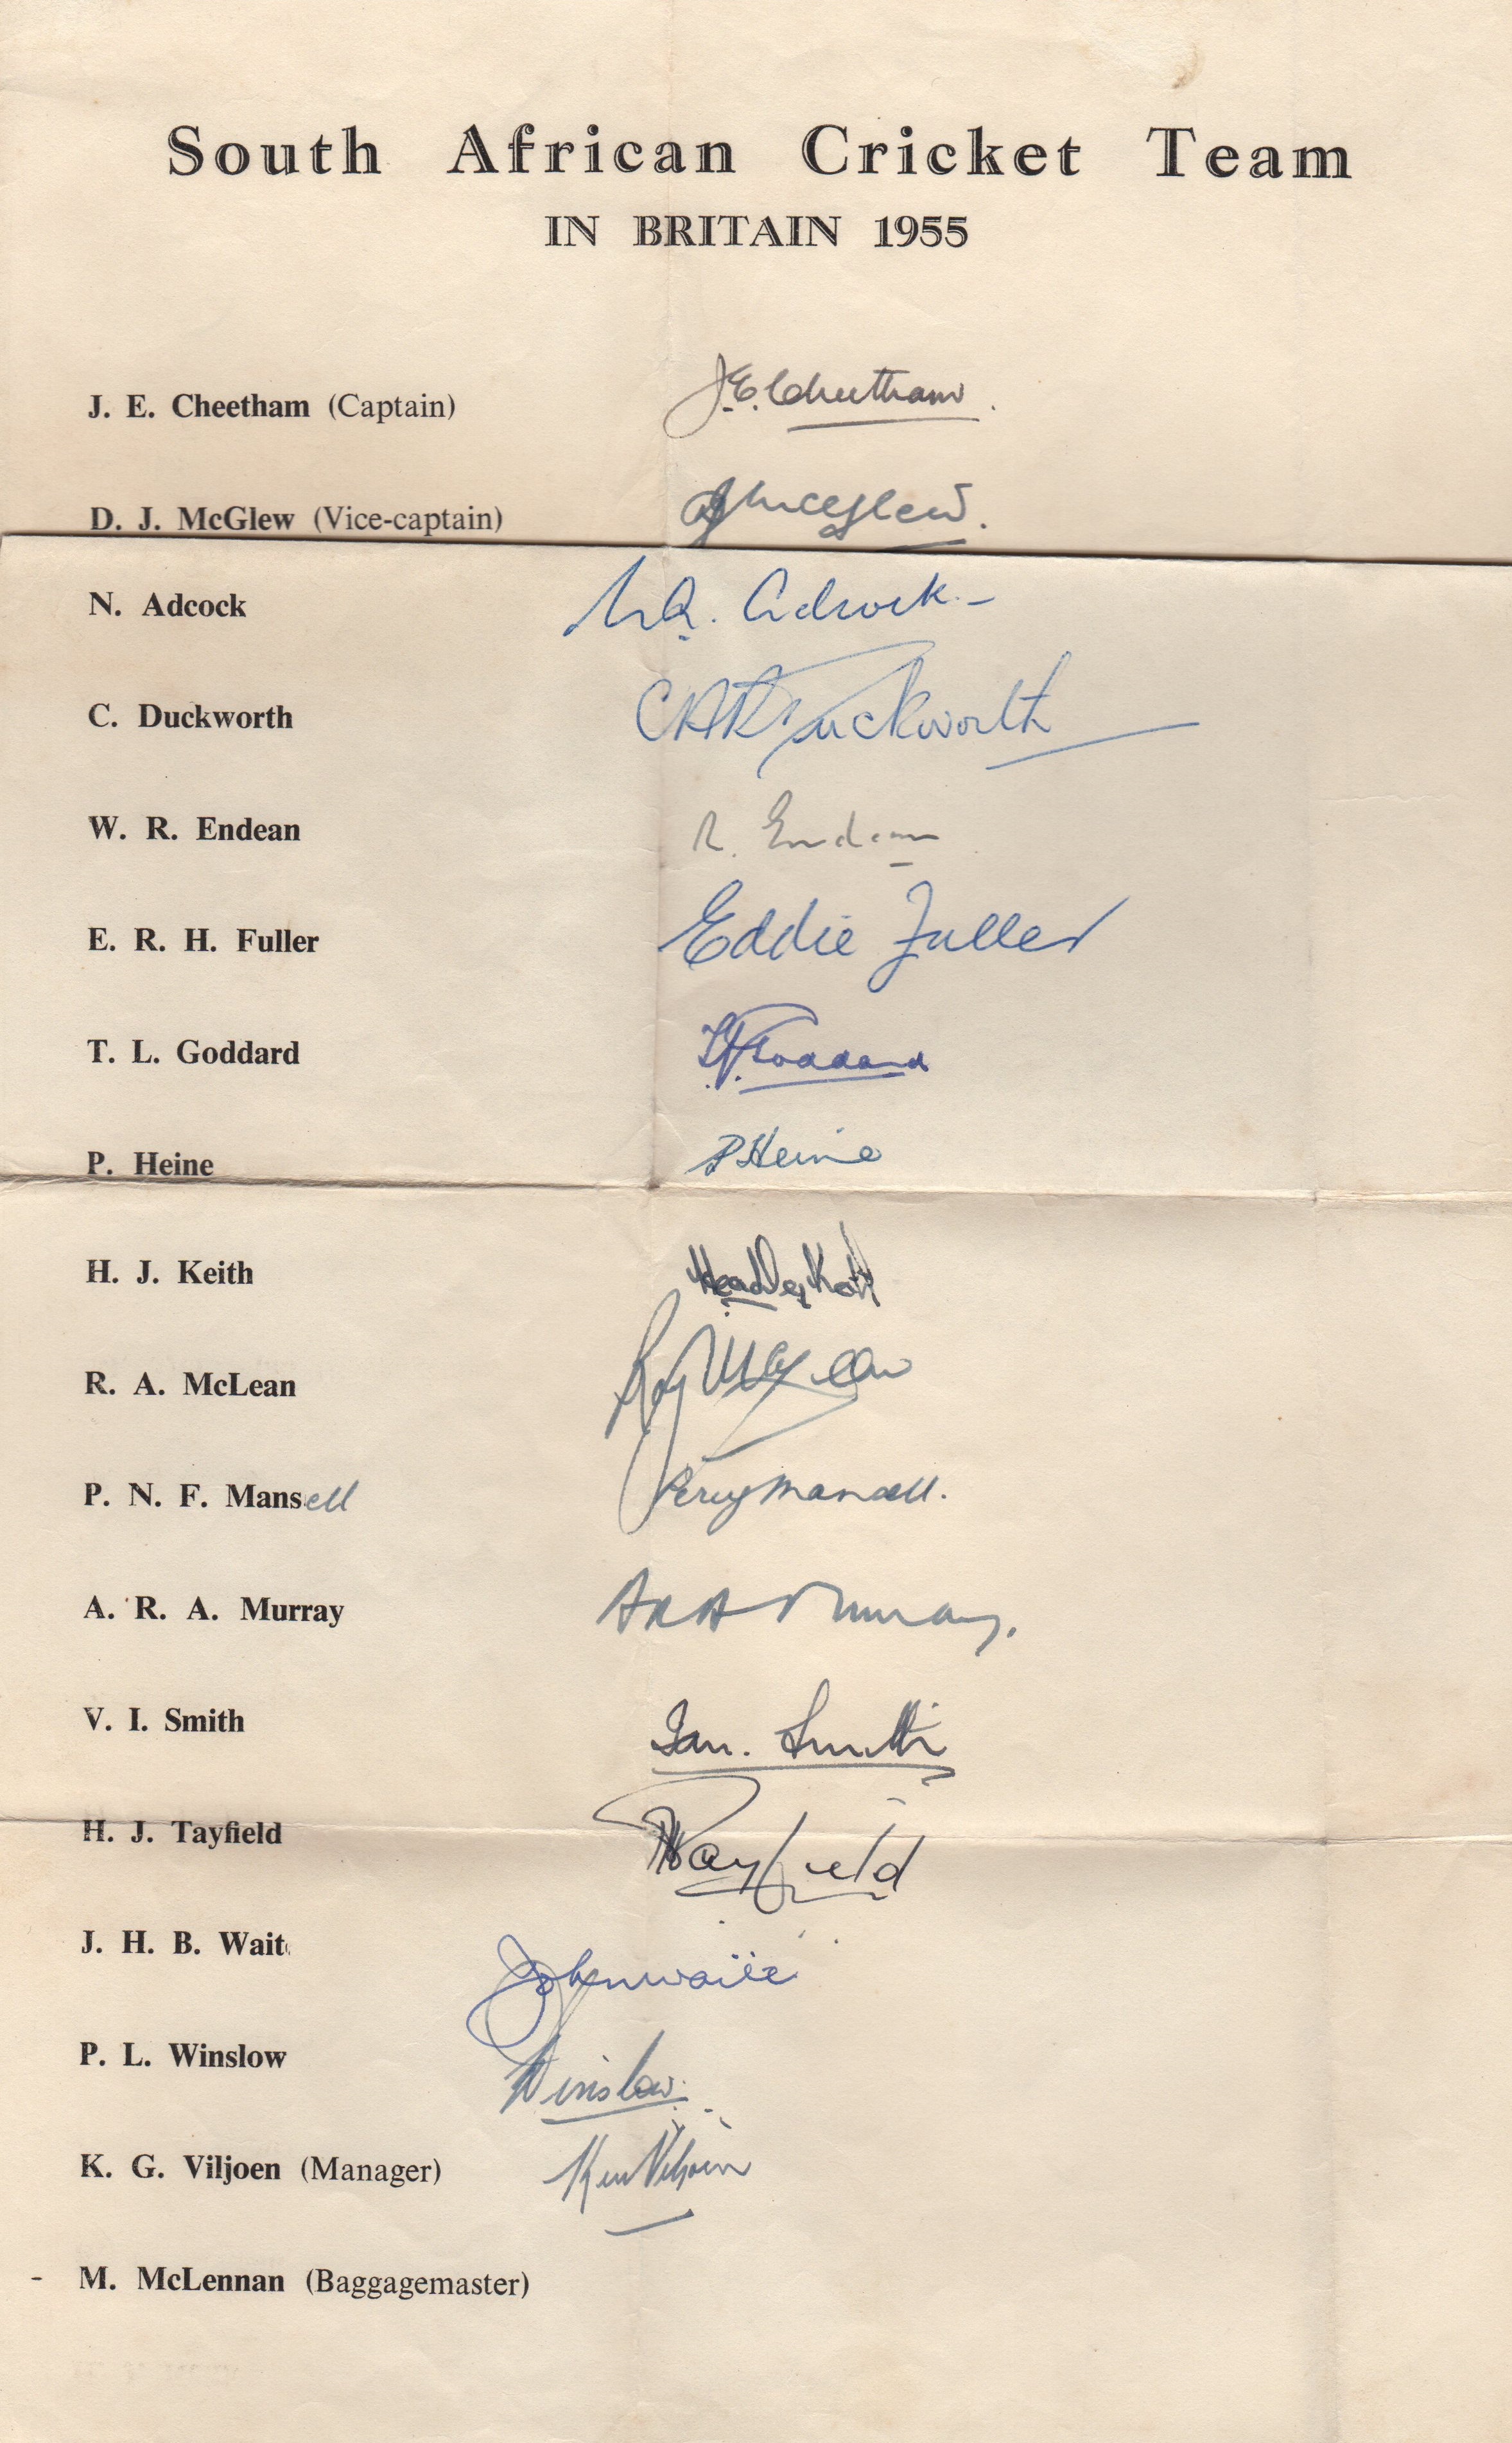 South African Cricket Team
IN BRITAIN 1955
J. E. Cheetham (Captain) J. E. Cheetham.
D. J. McGlew (Vice-captain) DJ McGlew.
N. Adcock N.A. Adcock
C. Duckworth CAR Duckworth
W. R. Endean R. Endean
E. R. H. Fuller Eddie Fuller
T. L. Goddard T.L. Goddard
P. Heine P Heine
H. J. Keith Headley Keith
R. A. McLean Roy McLean
P. N. F. Mansell Percy Mansell.
A. R. A. Murray ARA Murray.
V. I. Smith Ian. Smith
H. J. Tayfield HTayfield
J. H. B. Wait John Waite
P. L. Winslow Winslow.
K. G. Viljoen (Manager) Ken Viljoen
- M. McLennan (Baggagemaster)